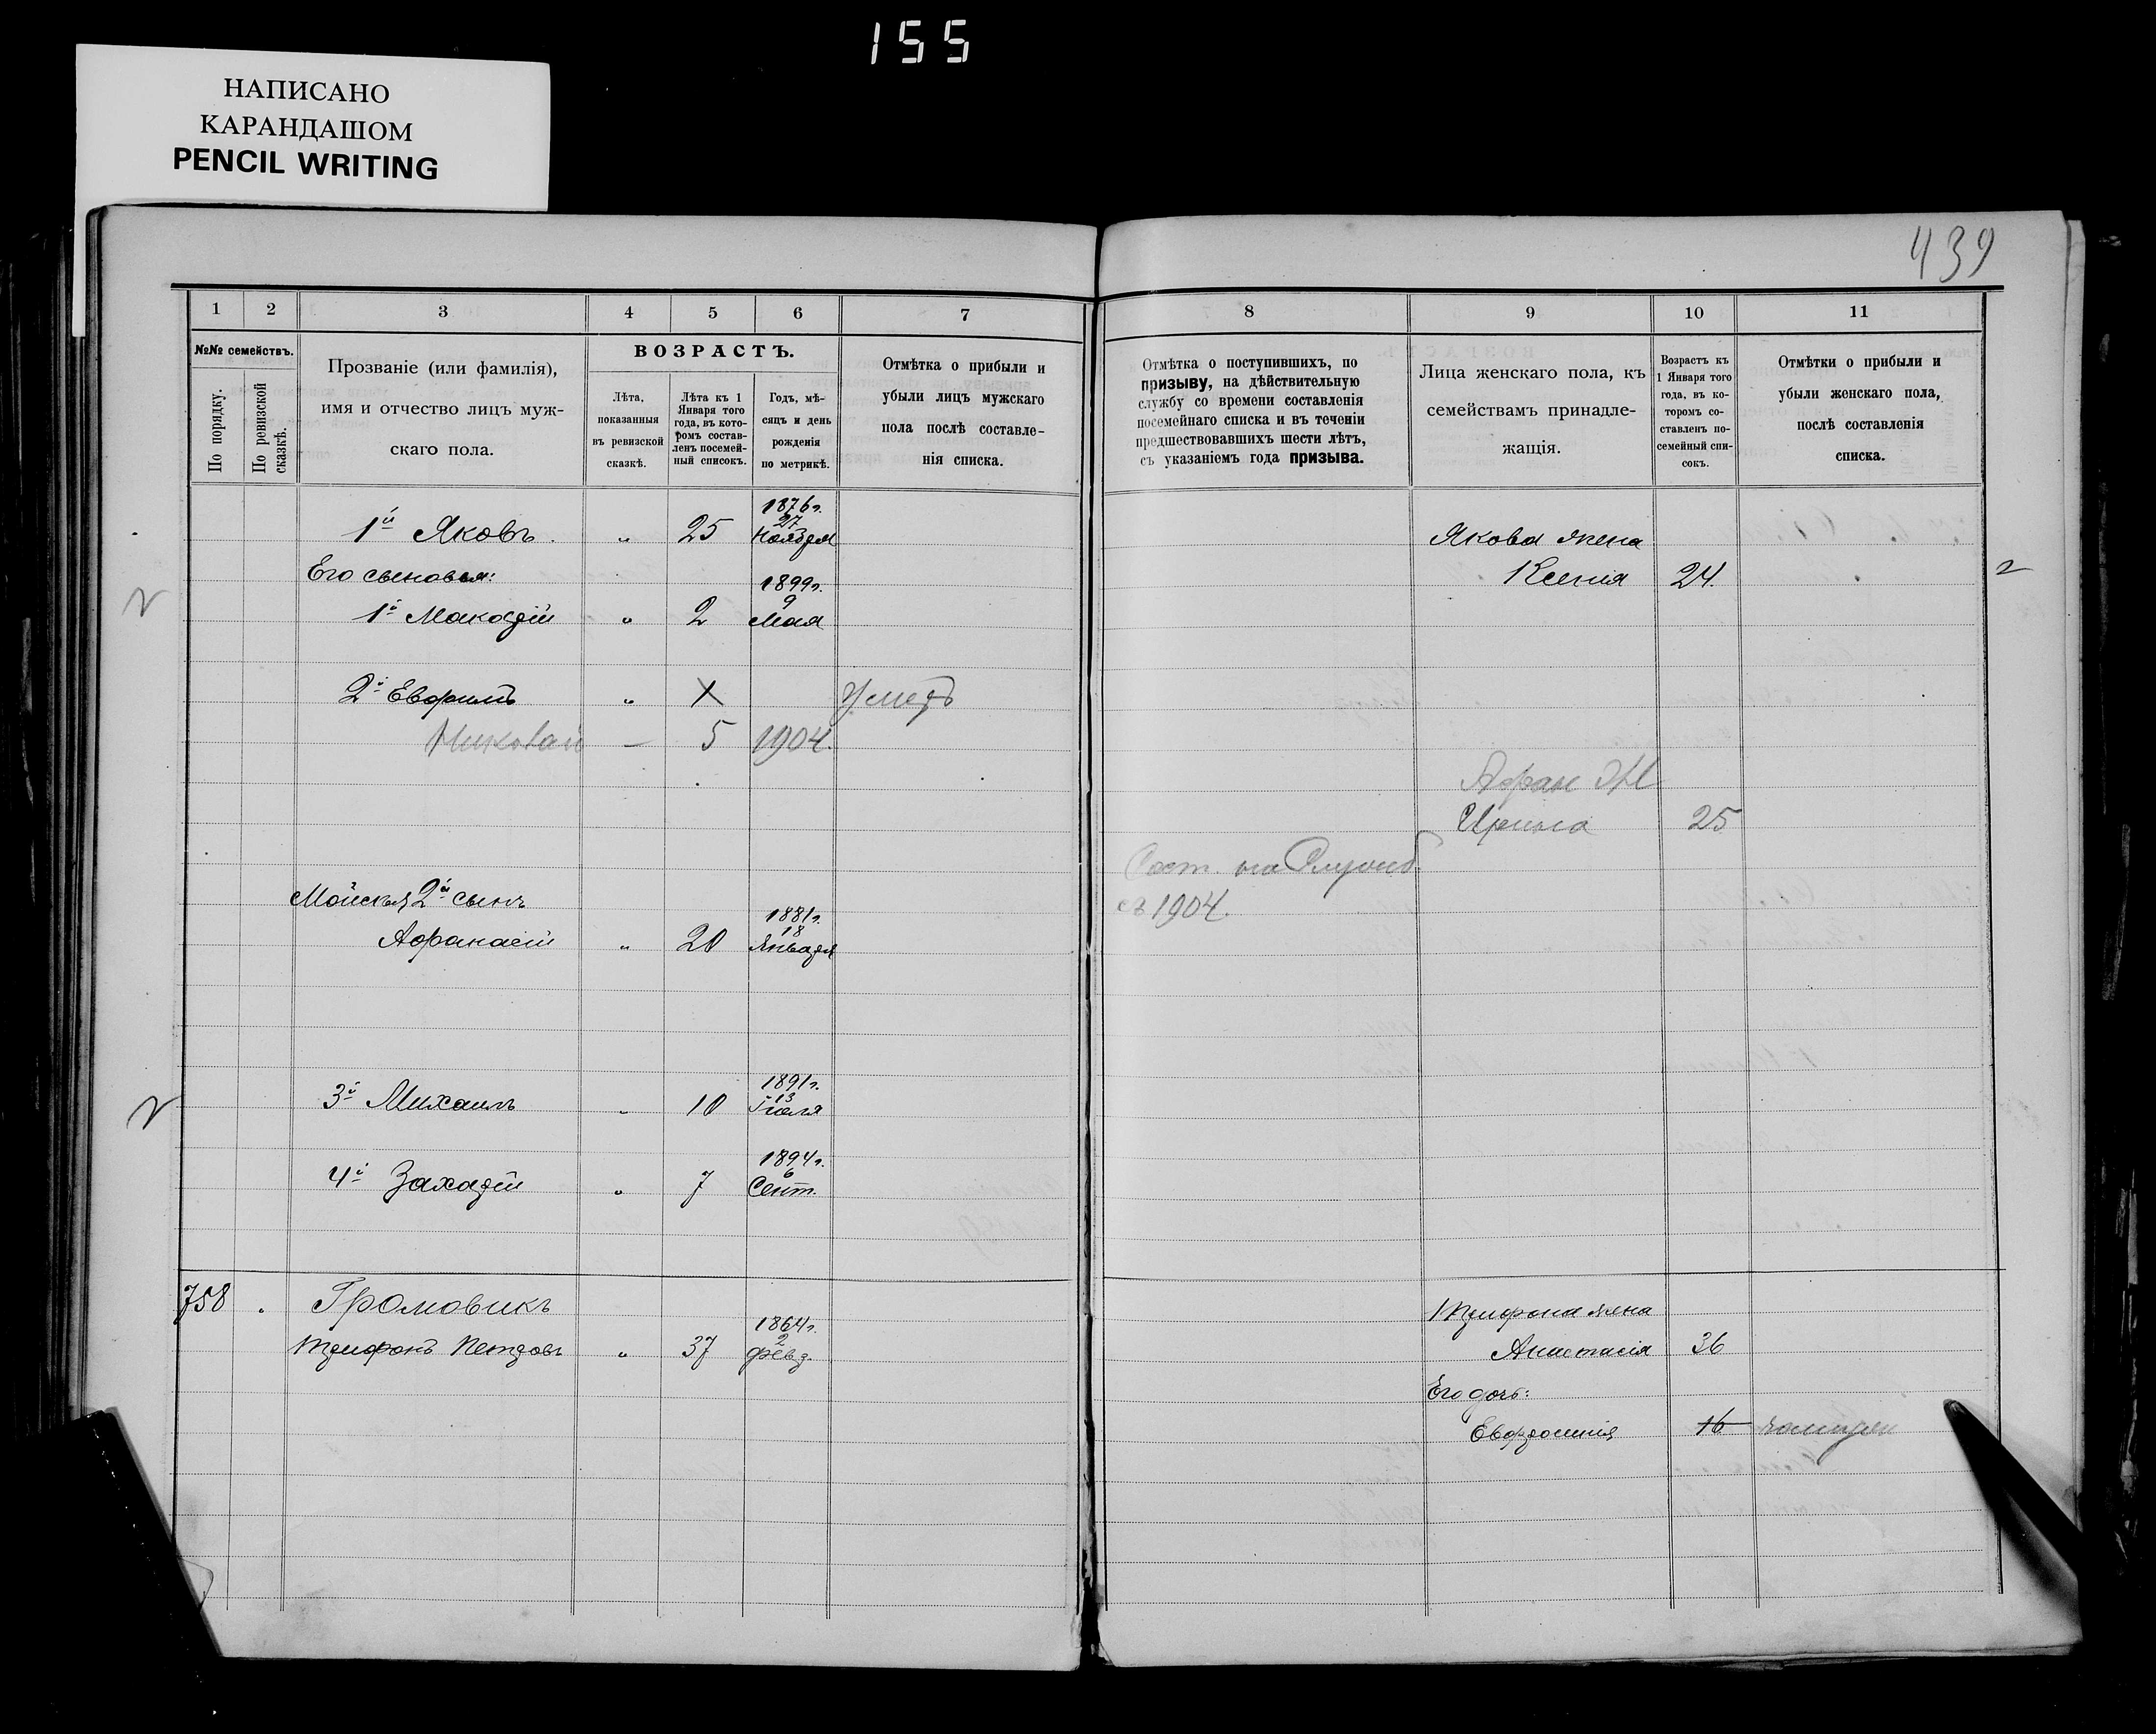 155
НАПИСАНО
КАРАНДАШОМ
PENCIL WRITING
439
1 2 3 4 5 6 7 8 9 10 11
№№ семействъ.
По порядку.
По ревизской сказкѣ.
Прозваніе (или фамилія),
имя и отчество лицъ муж-
скаго пола.
ВОЗРАСТЪ.
Лѣта,
показанныя
въ ревизской
сказкѣ.
Лѣта къ 1
Января того
года, въ кото-
ромъ состав-
ленъ посемей-
ный списокъ.
Годъ, мѣ-
сяцъ и день
рожденія
по метрикѣ.
Отмѣтка о прибыли и
убыли лицъ мужскаго
пола послѣ составле-
нія списка.
Отмѣтка о поступившихъ, по
призыву, на дѣйствительную
службу со времени составленія
посемейнаго списка и въ теченіи
предшествовавшихъ шести лѣтъ,
съ указаніемъ года призыва.
Лица женскаго пола, къ
семействамъ принадле-
жащія.
Возрастъ къ
1 Января того
года, въ ко-
торомъ со-
ставленъ по-
семейный спи-
сокъ.
Отмѣтки о прибыли и
убыли женскаго пола,
послѣ составленія
списка.
1й Яковъ „ 25 1876г. 27 Ноября
Якова жена
Его сыновья:
Ксенія 24.
2
1й Макарій „ 2 1899г. 9 Мая
2й Евфимъ „ Умеръ
Николай — 5 1904.
Афан Ж
Ирина 25
с 1904.
Мойсея 2й сынъ
Афанасій „ 20 1881г. 18 Января
3й Михаилъ „ 10 1891г. 13 Іюля
4й Захарій „ 7 1894г. 6 Сент.
758 Громовикъ
Трифонъ Петровъ „ 37 1864г. 2 Февр.
Трифона жена
Анастасія 36
Его дочь:
Евфросинія 16